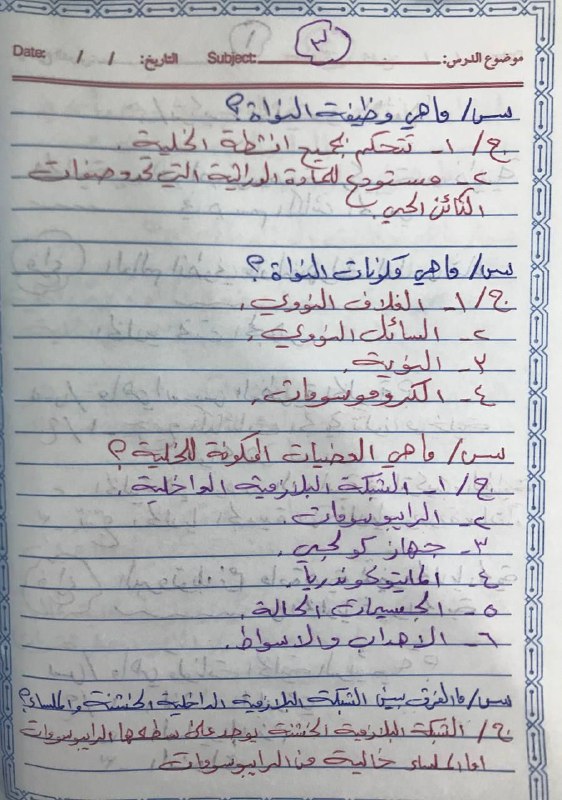 موضوع الدرس: Subject: ٣ التاريخ: / / Date:
س/ ماهي وظيفة النواة؟
ج/ ١- تتحكم بجميع انشطة الخلية.
٢- مستودع للمادة الوراثية التي تحدد صفات
الكائن الحي
س/ ماهي مكونات النواة؟
ج/ ١- الغلاف النووي.
٢- السائل النووي.
٣- النوية.
٤- الكروموسومات.
س/ ماهي العضيات المكونة للخلية؟
ج/ ١- الشبكة البلازمية الداخلية.
٢- الرايبوسومات.
٣- جهاز كولجي.
٤- المايتوكوندريا.
٥- الجسيمات الحالة.
٦- الاهداب والاسواط.
س/ ما الفرق بين الشبكة البلازمية الداخلية الخشنة والملساء؟
ج/ الشبكة البلازمية الخشنة يوجد على سطحها الرايبوسومات
اما الملساء خالية من الرايبوسومات